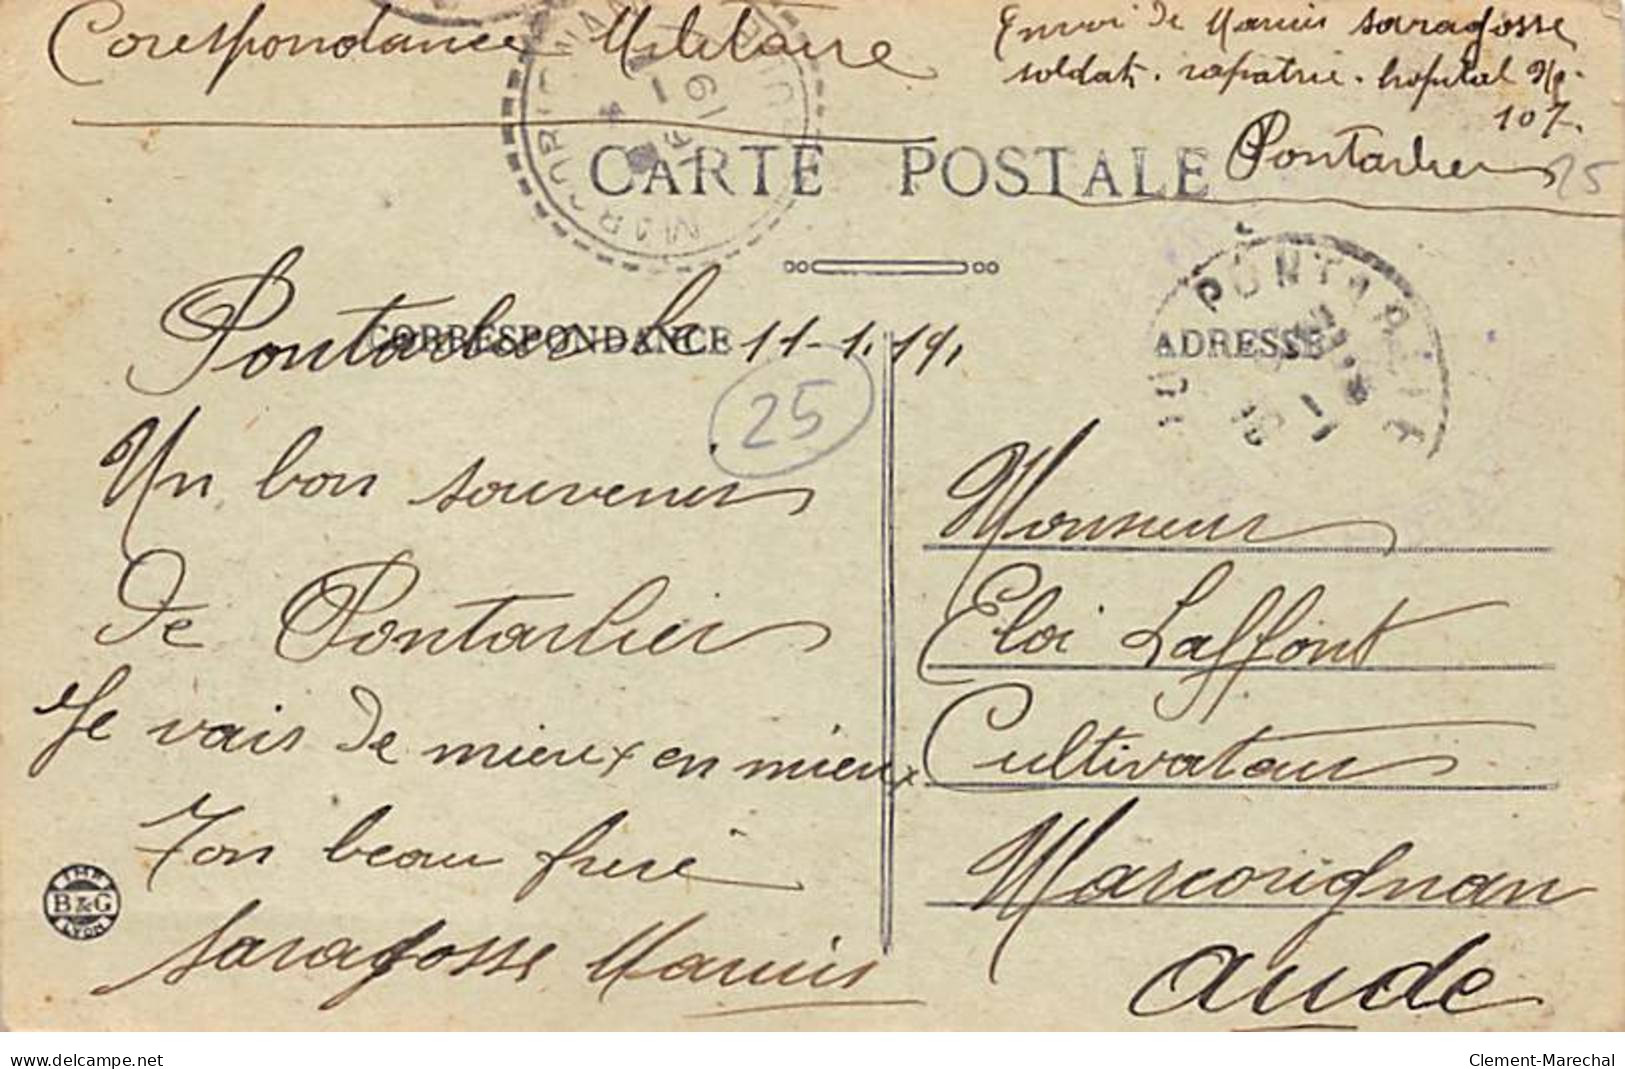 Corespondance Militaire
Envoi De Marius Saragosse
soldat. rapatrié. hopital
107.
Pontarlier
25
CARTE POSTALE
MARCORIGNAN
PONTARLIER
CORRESPONDANCE
ADRESSE
Pontarlier le 11-1.19,
25
Un bon souvenir
De Pontarlier
Je vais De mieux en mieux
Ton beau frere
Saragosse Marius
Monsieur
Eloi Laffont
Cultivateur
Marcorignan
Aude
IMP.
B&G
LYON
www.delcampe.net
Clement-Marechal